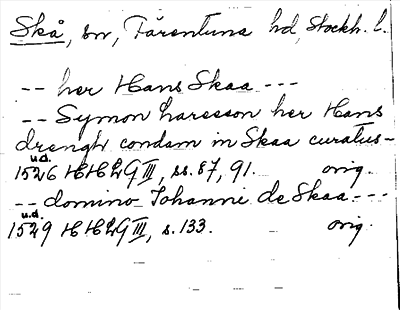 Skå, sn, Färentuna hd, Stockh. l.
-- her Hans Skaa ---
-- Symon Laresson her Hans
drengh condam in Skaa curatus -
u.d.
1526 HH LG III, ss. 87, 91. orig.
-- domino Johanni de Skaa ---
u.d.
1529 HH LG III, s. 133. orig.